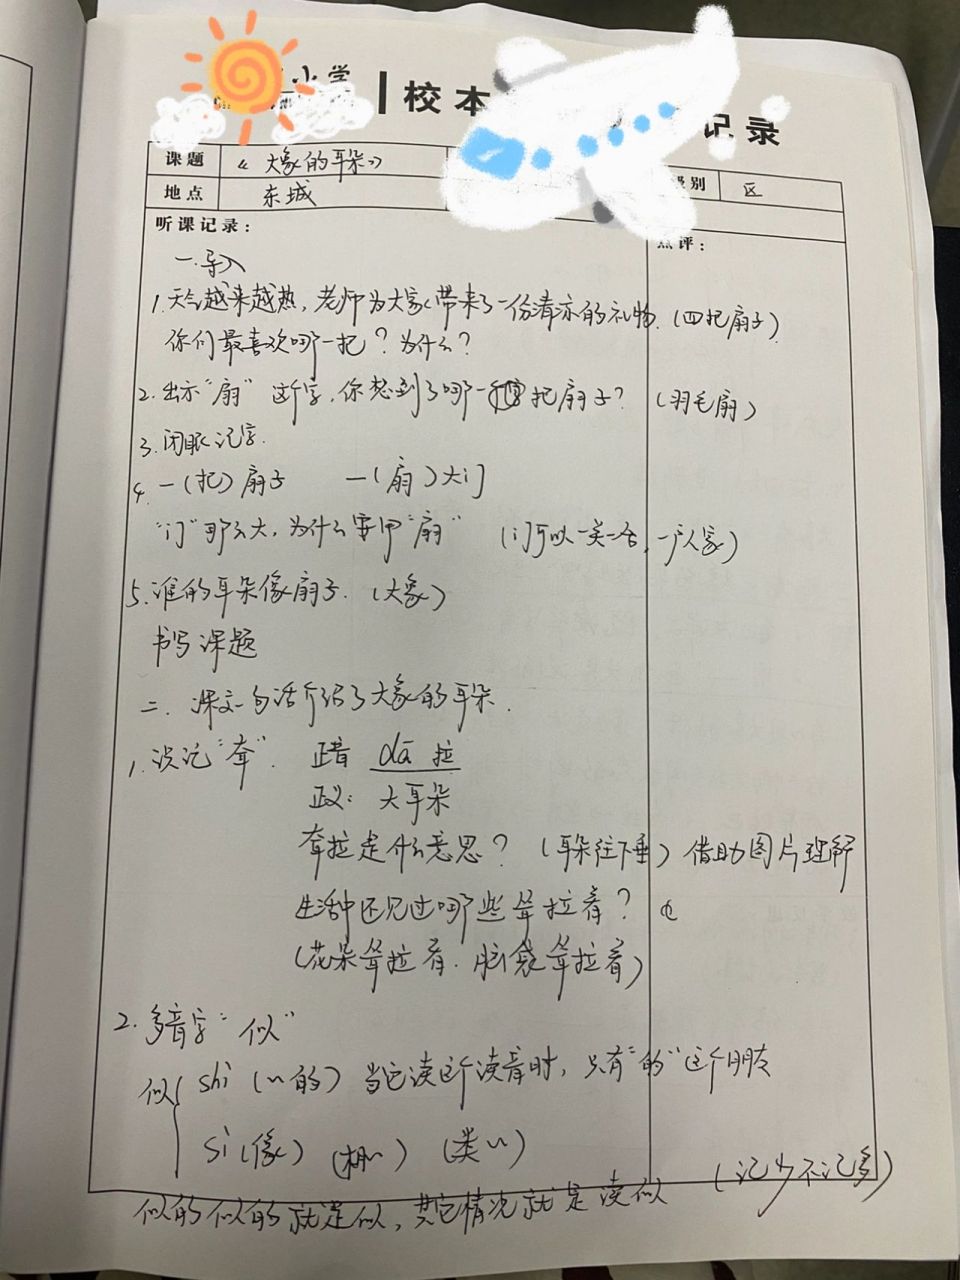 小学
校本 记录
课题 《大象的耳朵》
级别 区
地点 东城
听课记录：
点评：
一.导入
1.天气越来越热，老师为大家带来了一份清凉的礼物.(四把扇子)
你们最喜欢哪一把？为什么？
2.出示“扇”这个字，你想到了哪一把扇子？(羽毛扇)
3.闭眼记字.
4.一(把)扇子 一(扇)大门
“门”那么大，为什么要用“扇” (门可以一关一合，一户人家)
5.谁的耳朵像扇子.(大象)
书写课题
二.课文一句话介绍了大象的耳朵.
1.识记“耷”. 正音 dā 拉
正义：大耳朵
耷拉是什么意思？(耳朵往下垂)借助图片理解
生活中还见过哪些耷拉着？
(花朵耷拉着.脑袋耷拉着)
2.多音字“似”
似 shì (〃的) 当它读这个读音时，只有“的”这个朋友
sì (像) (相〃) (类〃)
似的似的就是似，其它情况就是读似 (记少不记多)